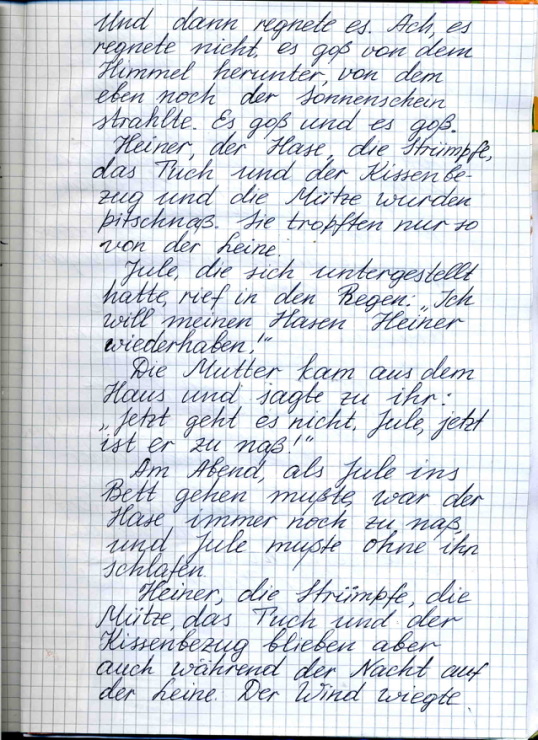 Und dann regnete es. Ach, es
regnete nicht, es goß von dem
Himmel herunter, von dem
eben noch der Sonnenschein
strahlte. Es goß und es goß.
Heiner, der Hase, die Strümpfe,
das Tuch und der Kissenbe-
zug und die Mütze wurden
pitschnaß. Sie tropften nur so
von der Leine.
Jule, die sich untergestellt
hatte, rief in den Regen: „Ich
will meinen Hasen Heiner
wiederhaben!"
Die Mutter kam aus dem
Haus und sagte zu ihr:
„Jetzt geht es nicht, Jule, jetzt
ist er zu naß!"
Am Abend, als Jule ins
Bett gehen mußte, war der
Hase immer noch zu naß,
und Jule mußte ohne ihn
schlafen.
Heiner, die Strümpfe, die
Mütze, das Tuch und der
Kissenbezug blieben aber
auch während der Nacht auf
der Leine. Der Wind wiegte